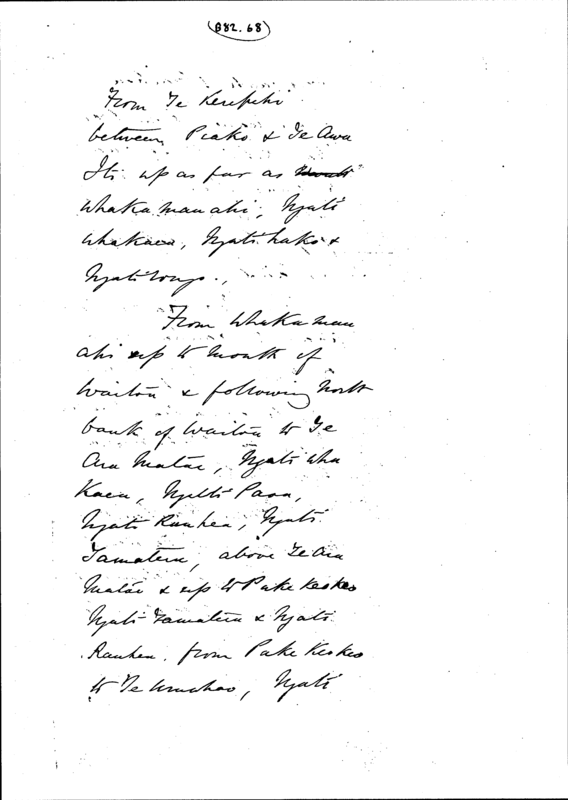 (B82.68)
From Te Kerepehi
between Piako & Te Awa
Iti up as far as
Whaka mau ahi, Ngati
Whakaea, Ngati hako &
Ngati
From Whaka mau
ahi up to mouth of
Waitoa & following North
bank of Waitoa to Te
Ara Matae, Ngati Wha
Kaea, Ngatti Paoa,
Ngati Rauhea, Ngati
Tamatera, above Te Ara
Matae & up to Pake Keokeo
Ngati Tamatera & Ngati
Rauhea. from Pake Keokeo
to Te Ngati